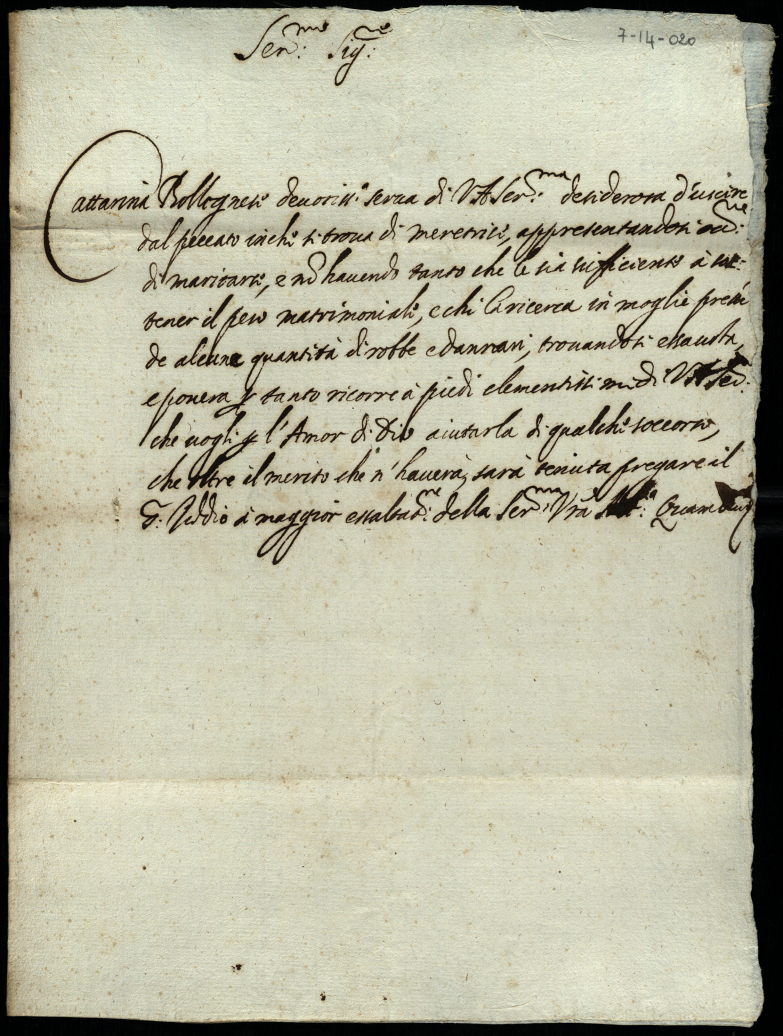 7-14-020
Ser.mo Sig.re
Cattarina Bollognesi devotiss.a serva di V.A. Ser.ma desiderosa d'uscire
dal peccato in che si trova di meretrice, appresentandosi occ.ne
di maritarsi, e nõ havendo tanto che le sia sufficiente à sus-
tener il peso matrimoniale, e chi la ricerca in moglie preten
de alcune quantità di robbe e dannari, trovandosi essausta,
e povera p tanto ricorre à piedi clementissimi di V.A. Ser.
che vogli p l'Amor di Dio aiutarla di qualche soccorso,
che oltre il merito che n'haverà, sarà tenuta pregare il
S. Iddio à maggior essaltat.ne della Ser.ma Vrã Alt.a Quam Deus